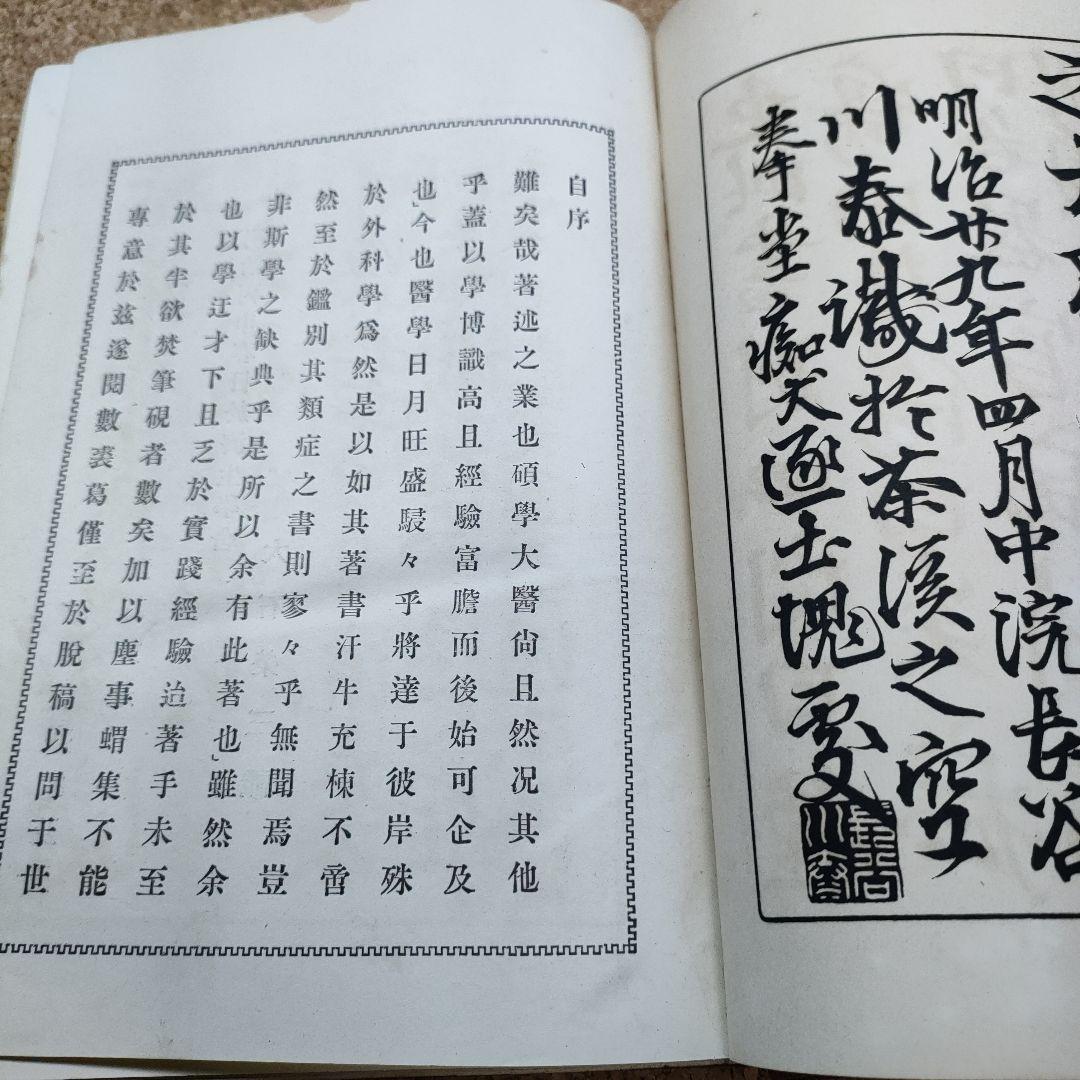 明治廿九年四月中浣長谷
川泰識於茶渓之空
拳堂癡犬逐土塊處
自序
難矣哉著述之業也碩學大醫尙且然况其他
乎蓋以學博識高且經驗富膽而後始可企及
也」今也醫學日月旺盛駸々乎將達于彼岸殊
於外科學爲然是以如其著書汗牛充棟不啻
然至於鑑別其類症之書則寥々乎無聞焉豈
非斯學之缺典乎是所以余有此著也」雖然余
也以學迂才下且乏於實踐經驗迨著手未至
於其半欲焚筆硯者數矣加以塵事蝟集不能
專意於玆遂閱數裘葛僅至於脫稿以問于世